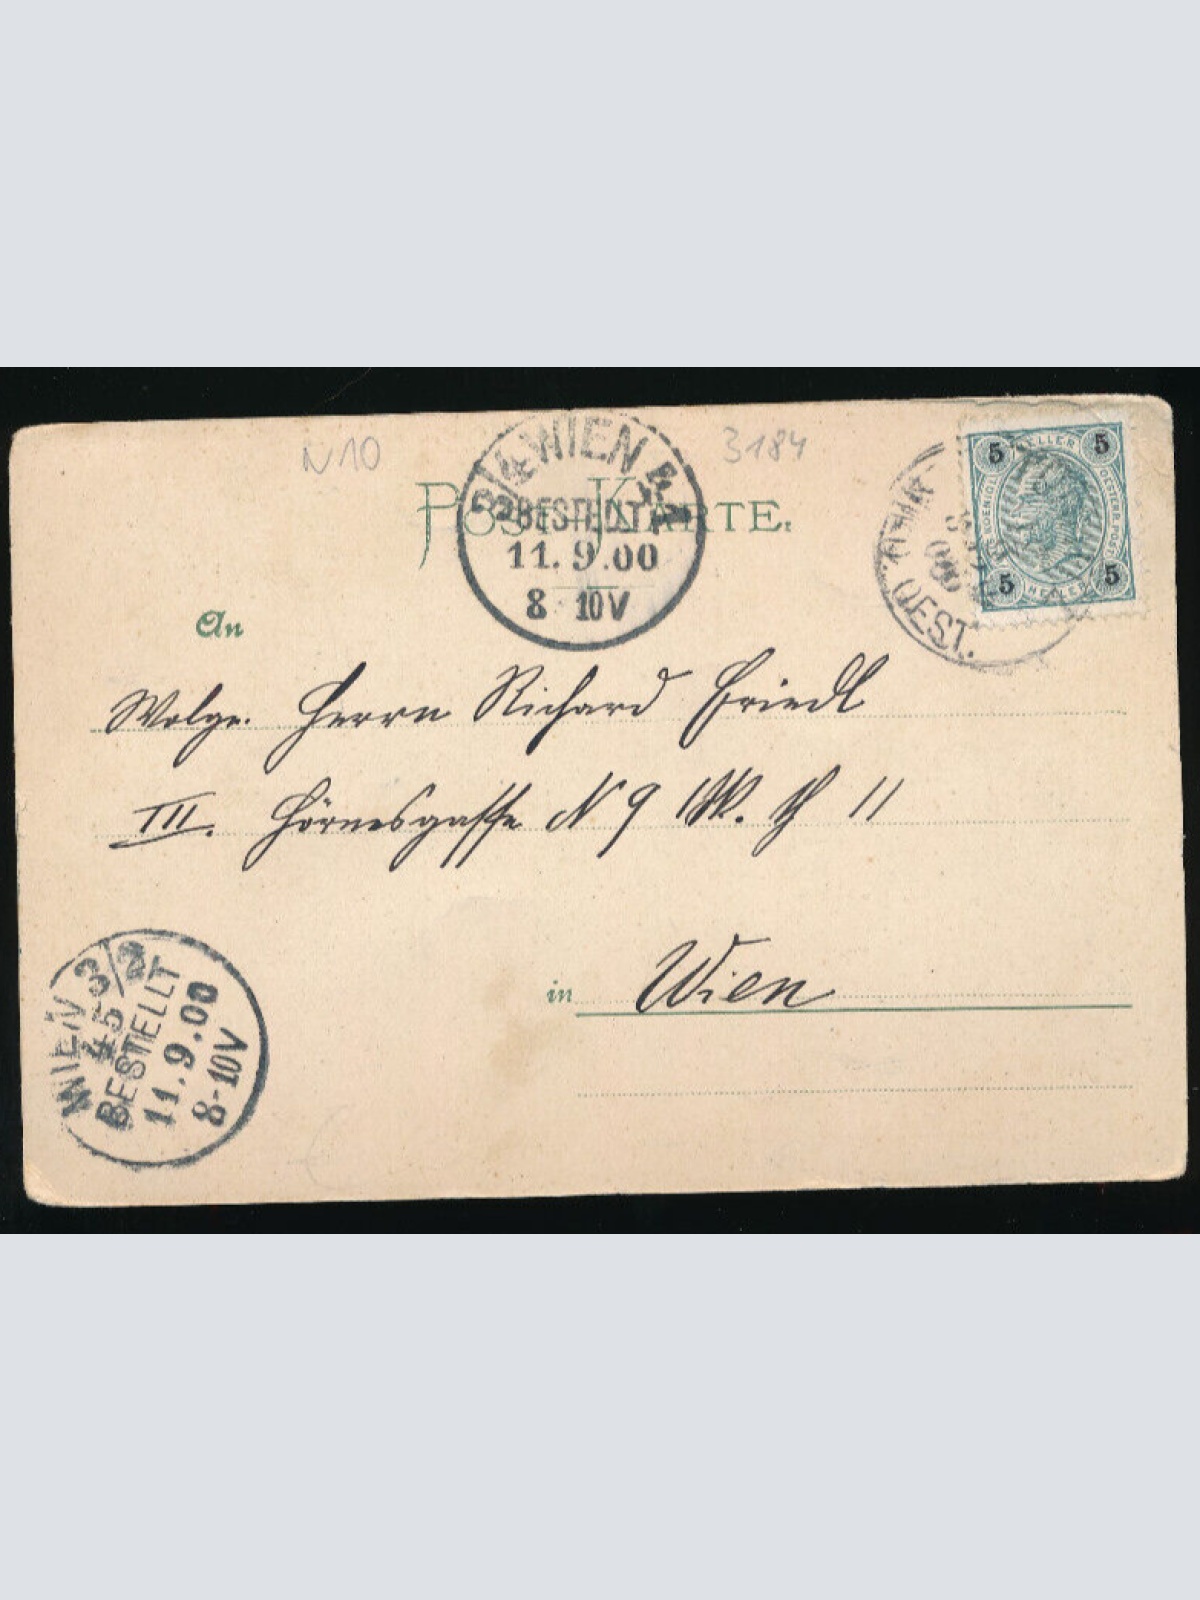 N10
3184
POST-KARTE.
3/4 WIEN
BESTELLT
11.9.00
8 10V
5 HELLER 5
5 HELLER 5
OEST.
An
Wolge. Herrn Richard Friedl
III. Hörnesgasse N 9 th 11
in Wien
WIEN 3/2
45
BESTELLT
11.9.00
8-10V